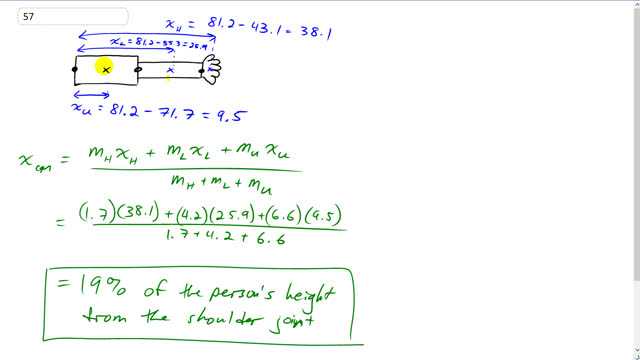 57
x_H = 81.2 - 43.1 = 38.1
x_L = 81.2 - 55.3 = 25.9
x_U = 81.2 - 71.7 = 9.5
x_cm = (m_H x_H + m_L x_L + m_U x_U) / (m_H + m_L + m_U)
= ((1.7)(38.1) + (4.2)(25.9) + (6.6)(9.5)) / (1.7 + 4.2 + 6.6)
= 19% of the person's height
from the shoulder joint